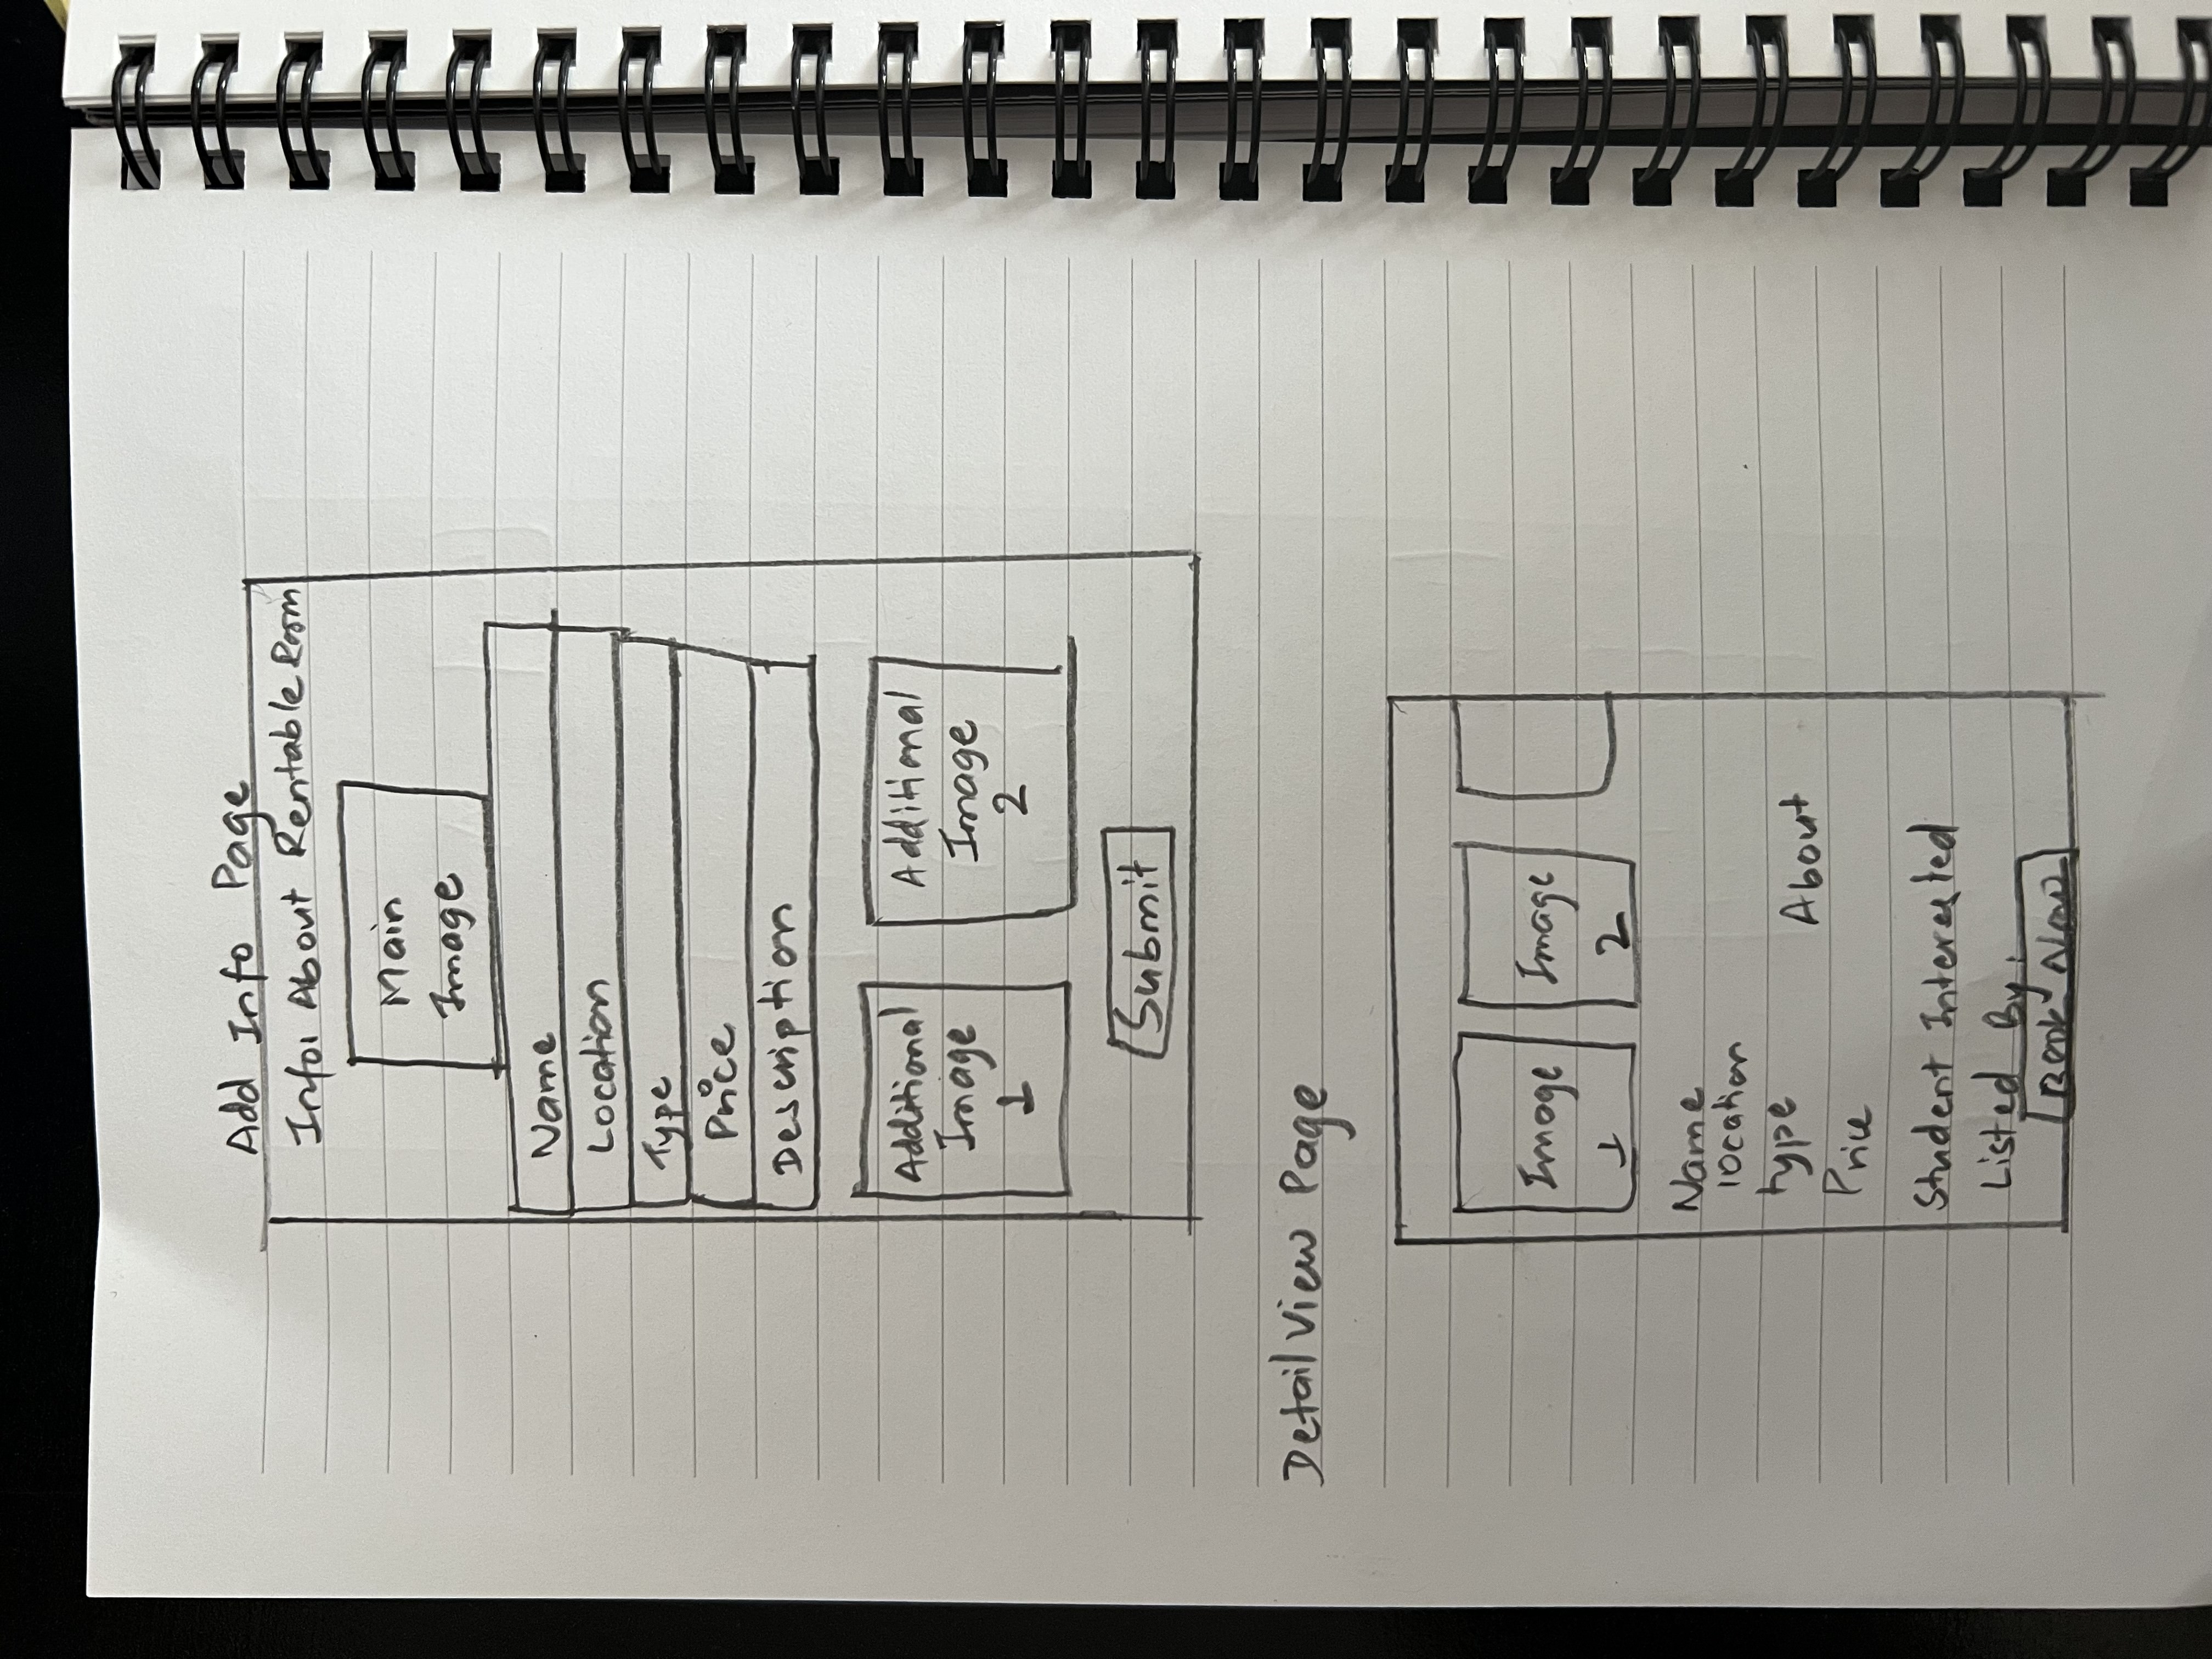 Add Info Page
Info: About Rentable Room
Main
Image
Name
Location
Type
Price
Description
Additional
Image
1
Additional
Image
2
Submit
Detail View Page
Image
1
Image
2
Name
location
type
About
Price
Student Interested
Listed By:
Book Now